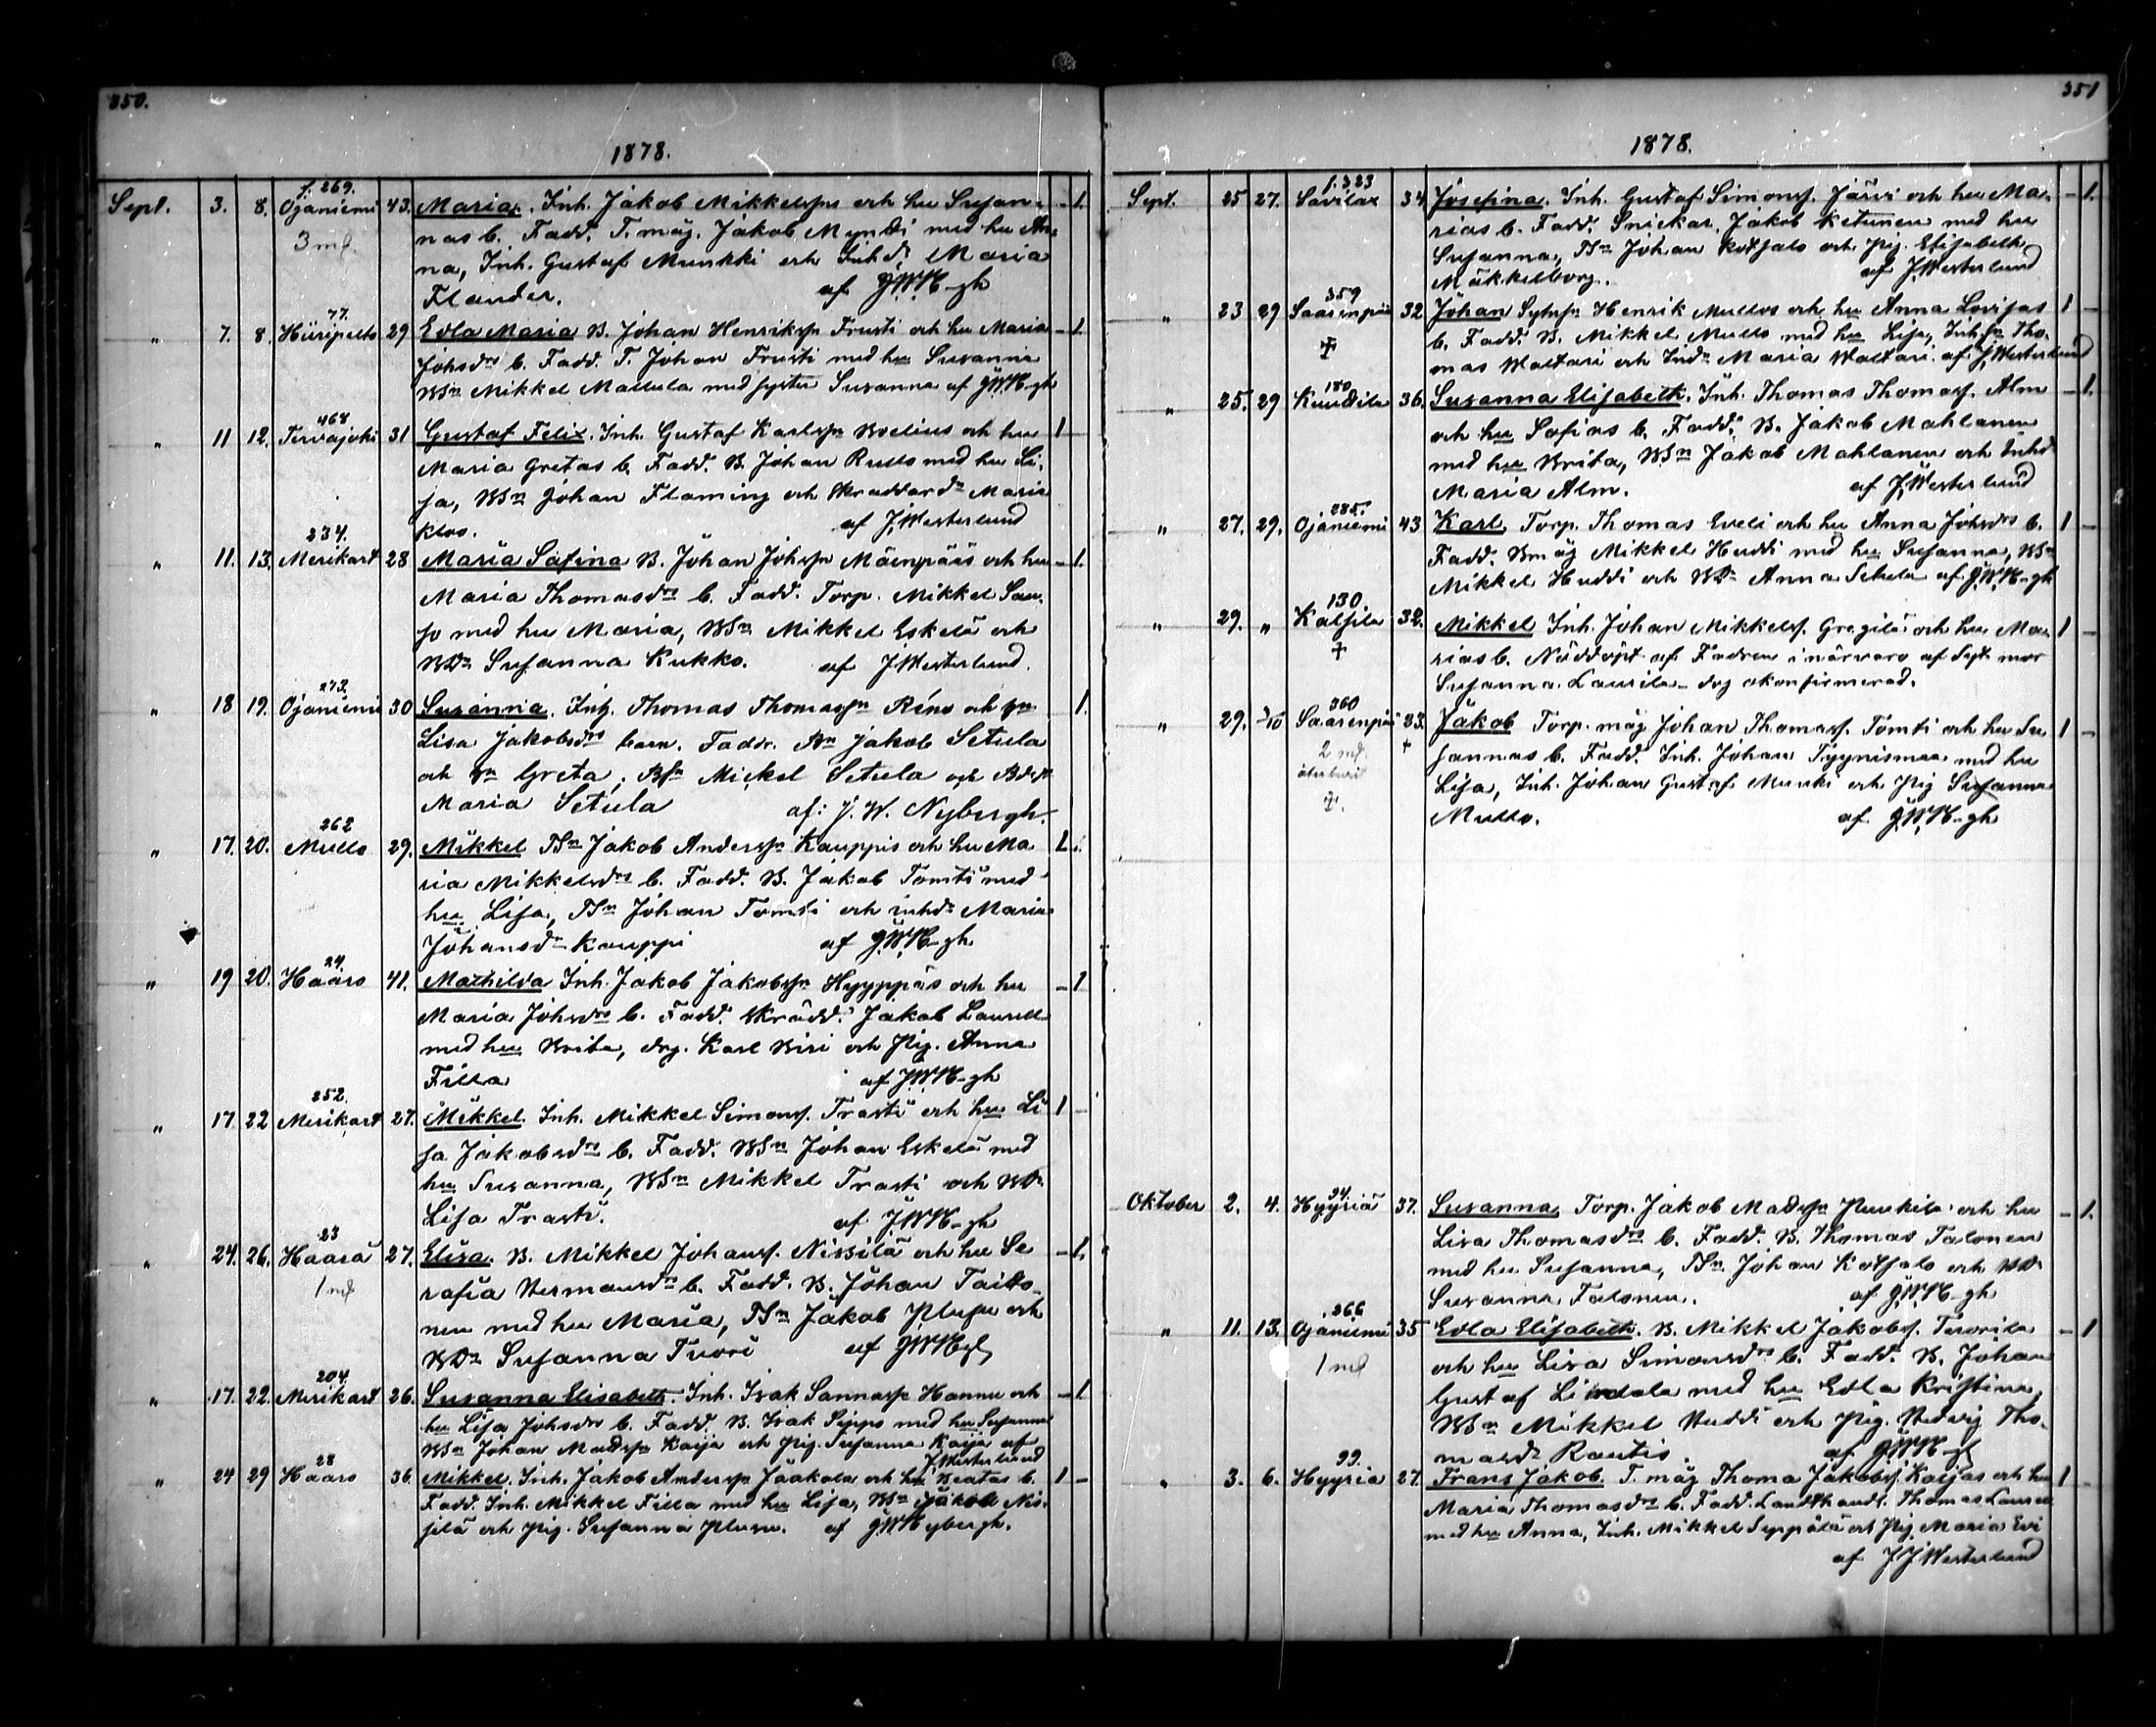 350.
1878.
Sept. 3. 8. f. 269. Ojaniemi 43. Maria. Inh. Jakob Mikkelsson och hu Susan- - 1.
3 mf. nas b. Fadd. T. måg. Jakob Myndi med hu An-
na, Inh. Gustaf Munkki och Inhdr Maria
Flander. af JWN-gh
" 7. 8. 77. Hiiripelto 29 Edla Maria B. Johan Henriksson Frusti och hu Maria - 1.
Johsdrs b. Fadd. T. Johan Frusti med hu Susanna
BSn Mikkel Mattula med syster Susanna af JWN-gh
" 11 12. 468 Tervajoki 31 Gustaf Felix. Inh. Gustaf Karlsson Boelius och hu 1
Maria Gretas b. Fadd. B. Johan Rullo med hu Li-
sa, BSn Johan Flaming och Skraddardr Maria
Klos. af J. Westerlund
" 11. 13. 234. Merikart 28 Maria Safina B. Johan Johsson Mäenpääs och hu - 1.
Maria Thomasdrs b. Fadd. Torp. Mikkel Sau-
so med hu Maria, BSn Mikkel Eskelä och
BDr Susanna Kukko. af J. Westerlund.
" 18 19. 273 Ojaniemi 30 Susanna. Inh. Thomas Thomasson Rino och hn 1.
Lisa Jakobsdrs barn. Faddr. Bn Jakob Setula
och hn Greta; BSn Mickel Setula och Bdr
Maria Setula af: J. W. Nybergh.
" 17. 20. 262 Mullo 29. Mikkel TSn Jakob Andersson Kauppis och hu Ma 1.
ria Mikkelsdrs b. Fadd. B. Jakob Tomti med
hu Lisa, TSn Johan Tomti och inhdr Maria
Johansdr Kauppi af JWN-gh
" 19 20. 24. Haaro 41. Mathilda Inh. Jakob Jakobsson Hyyppäs och hu - 1
Maria Johsdrs b. Fadd. Skrädd. Jakob Laurell
med hu Brita, drg. Karl Biri och Pig. Anna
Filla af JWN-gh
" 17 22 252. Merikart 27. Mikkel. Inh. Mikkel Simonss. Trasti och hu Li 1 -
sa Jakobsdrs b. Fadd. BSn Johan Eskelä med
hu Susanna, BSn Mikkel Trasti och BDr
Lisa Trasti. af JWN-gh
" 24. 26. 23 Haara 27. Elisa. B. Mikkel Johanss. Nissilä och hu Se - 1.
1 mf rafia Hermansdrs b. Fadd. B. Johan Taito-
nen med hu Maria, TSn Jakob Plusu och
BDr Susanna Tuori af JWN-gh
" 17. 22. 204. Merikart 26. Susanna Elisabeth. Inh. Isak Sannasson Hannu och - 1
hu Lisa Johsdrs b. Fadd. B. Isak Seppo med hu Susanna
BSn Johan Madsson Kaija och Pig. Susanna Kaija af
J. Westerlund
" 24 29 28 Haaro 36. Mikkel. Inh. Jakob Andersson Jäakola och hu Beatas b. 1 -
Fadd. Inh. Mikkel Filla med hu Lisa, BSn Jakob Nis-
silä och Pig. Susanna Plusu. af JWNybergh.
351
1878.
Sept. 25 27. f. 323 Savilax 34 Josefina. Inh. Gustaf Simonss. Järvi och hu Ma- - 1.
rias b. Fadd. Snickar. Jakob Ketunen med hu
Susanna, TSn Johan Kotsalo och Pig. Elisabeth
Mäkkelborg. af J. Westerlund
" 23 29 359 Saarenpää 32 Johan Sytnsn Henrik Mullos och hu Anna Lovisas 1 -
b. Fadd. B. Mikkel Mullo med hu Lisa, Inh.sn Tho-
mas Waltari och Indr Maria Waltari. af J. Westerlund
" 25. 29 180 Kuudila 36. Susanna Elisabeth. Inh. Thomas Thomass. Alm - 1.
och hu Sofias b. Fadd. B. Jakob Mahlanen
med hu Brita, BSn Jakob Mahlanen och Inhdr
Maria Alm. af J. Westerlund
" 27. 29. 285. Ojaniemi 43 Karl. Torp. Thomas Eveli och hu Anna Johsdrs b. 1 -
Fadd. Bmåg Mikkel Huddi med hu Susanna, BSn
Mikkel Huddi och BDr Anna Setula af JWN-gh
" 29. " 130. Kalsila 32. Mikkel Inh. Johan Mikkelss. Gregilä och hu Ma- 1 -
rias b. Nöddöpt af Fadren i närvaro af Syt mor
Susanna Laurila - dog okonfirmerad.
" 29. 3/10 360 Saarenpää 33. Jakob Torp. måg Johan Thomass. Tomti och hu Su 1 -
2 mf. sannas b. Fadd. Inh. Johan Tyynismaa med hu
Lisa, Inh. Johan Gustaf Munki och Pig Susanna
Mullo. af JWN-gh
Oktober 2. 4. 94. Hyyriä 37. Susanna. Torp. Jakob Madsson Punkila och hu - 1.
Lisa Thomasdrs b. Fadd. B. Thomas Talonen
med hu Susanna, TSn Johan Kotsalo och BDr
Susanna Talonen. af JWN-gh
" 11. 13. 266 Ojaniemi 35 Edla Elisabeth. B. Mikkel Jakobss. Tuorila - 1
1 mf och hu Lisa Simonsdrs b. Fadd. B. Johan
Gustaf Lindala med hu Edla Kristina,
BSn Mikkel Huddi och Pig. Hedvig Tho-
masdr Rautis. af JWN-gh
" 3. 6. 99. Hyyria 27. Frans Jakob. T. måg Thoma Jakobss. Kaijas och hu 1 -
Maria Thomasdrs b. Fadd. Landthandl. Thomas Lauren
med hu Anna, Inh. Mikkel Seppälä och Pig Maria Evi
af J J Westerlund